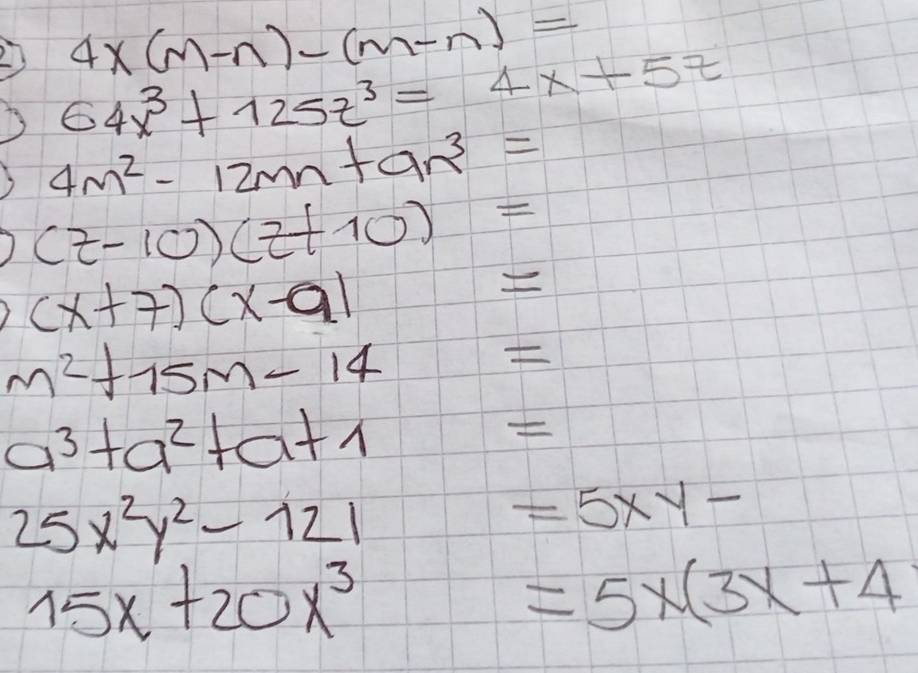 2) 4x(m-n)-(m-n) =
) 64x³ + 125z³ = 4x+5z
) 4m² - 12mn + 9n³ =
) (z-10)(z+10) =
) (x+7)(x-9) =
m²+15m-14 =
a³+a²+a+1 =
25x²y² - 121 = 5xy -
15x + 20x³ = 5x(3x+4